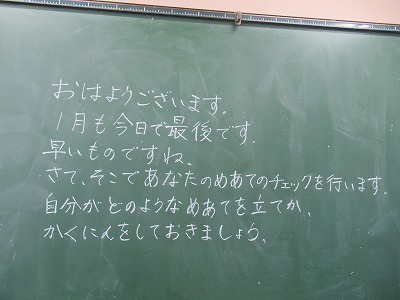 おはようございます。
1月も今日で最後です。
早いものですね。
さて、そこであなたのめあてのチェックを行います。
自分がどのようなめあてを立てか、
かくにんをしておきましょう。